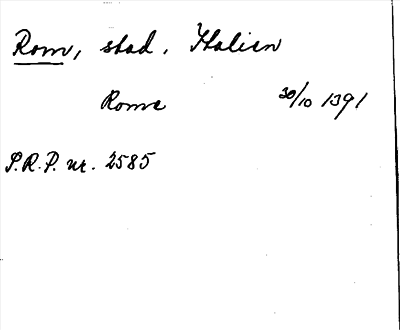 Rom, stad, Italien
Rome 30/10 1391
S.R.P. nr. 2585